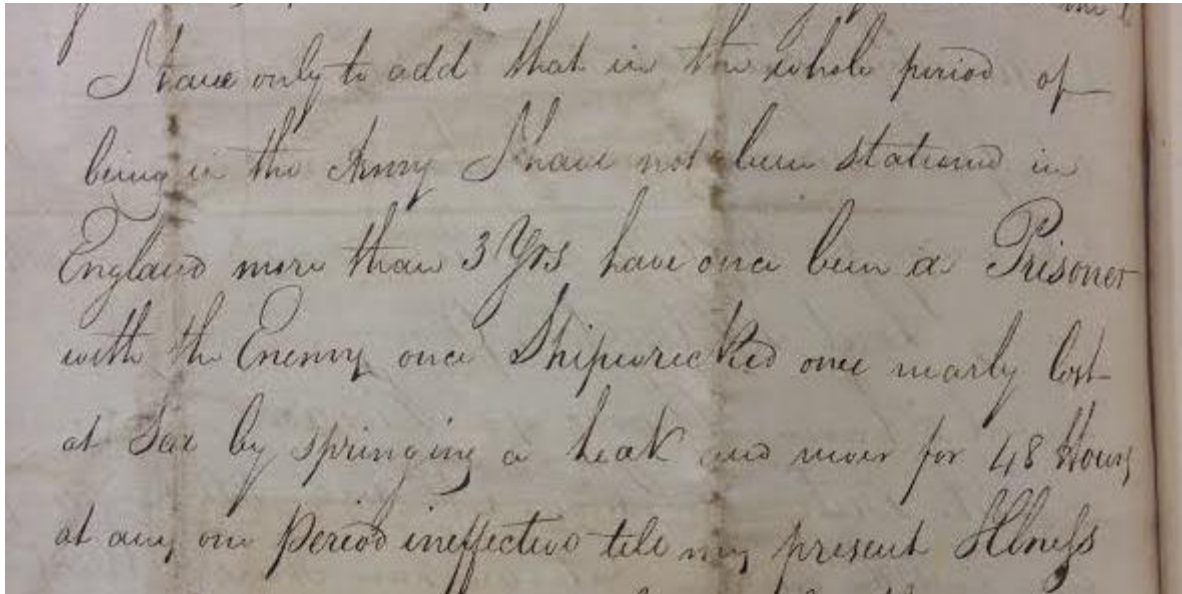 I have only to add that in the whole period of
being in the Army I have not been stationed in
England more than 3 Yrs have once been a Prisoner
with the Enemy once Shipwrecked once nearly lost
at Sea by springing a leak and never for 48 Hours
at any one Period ineffective till my present Illness